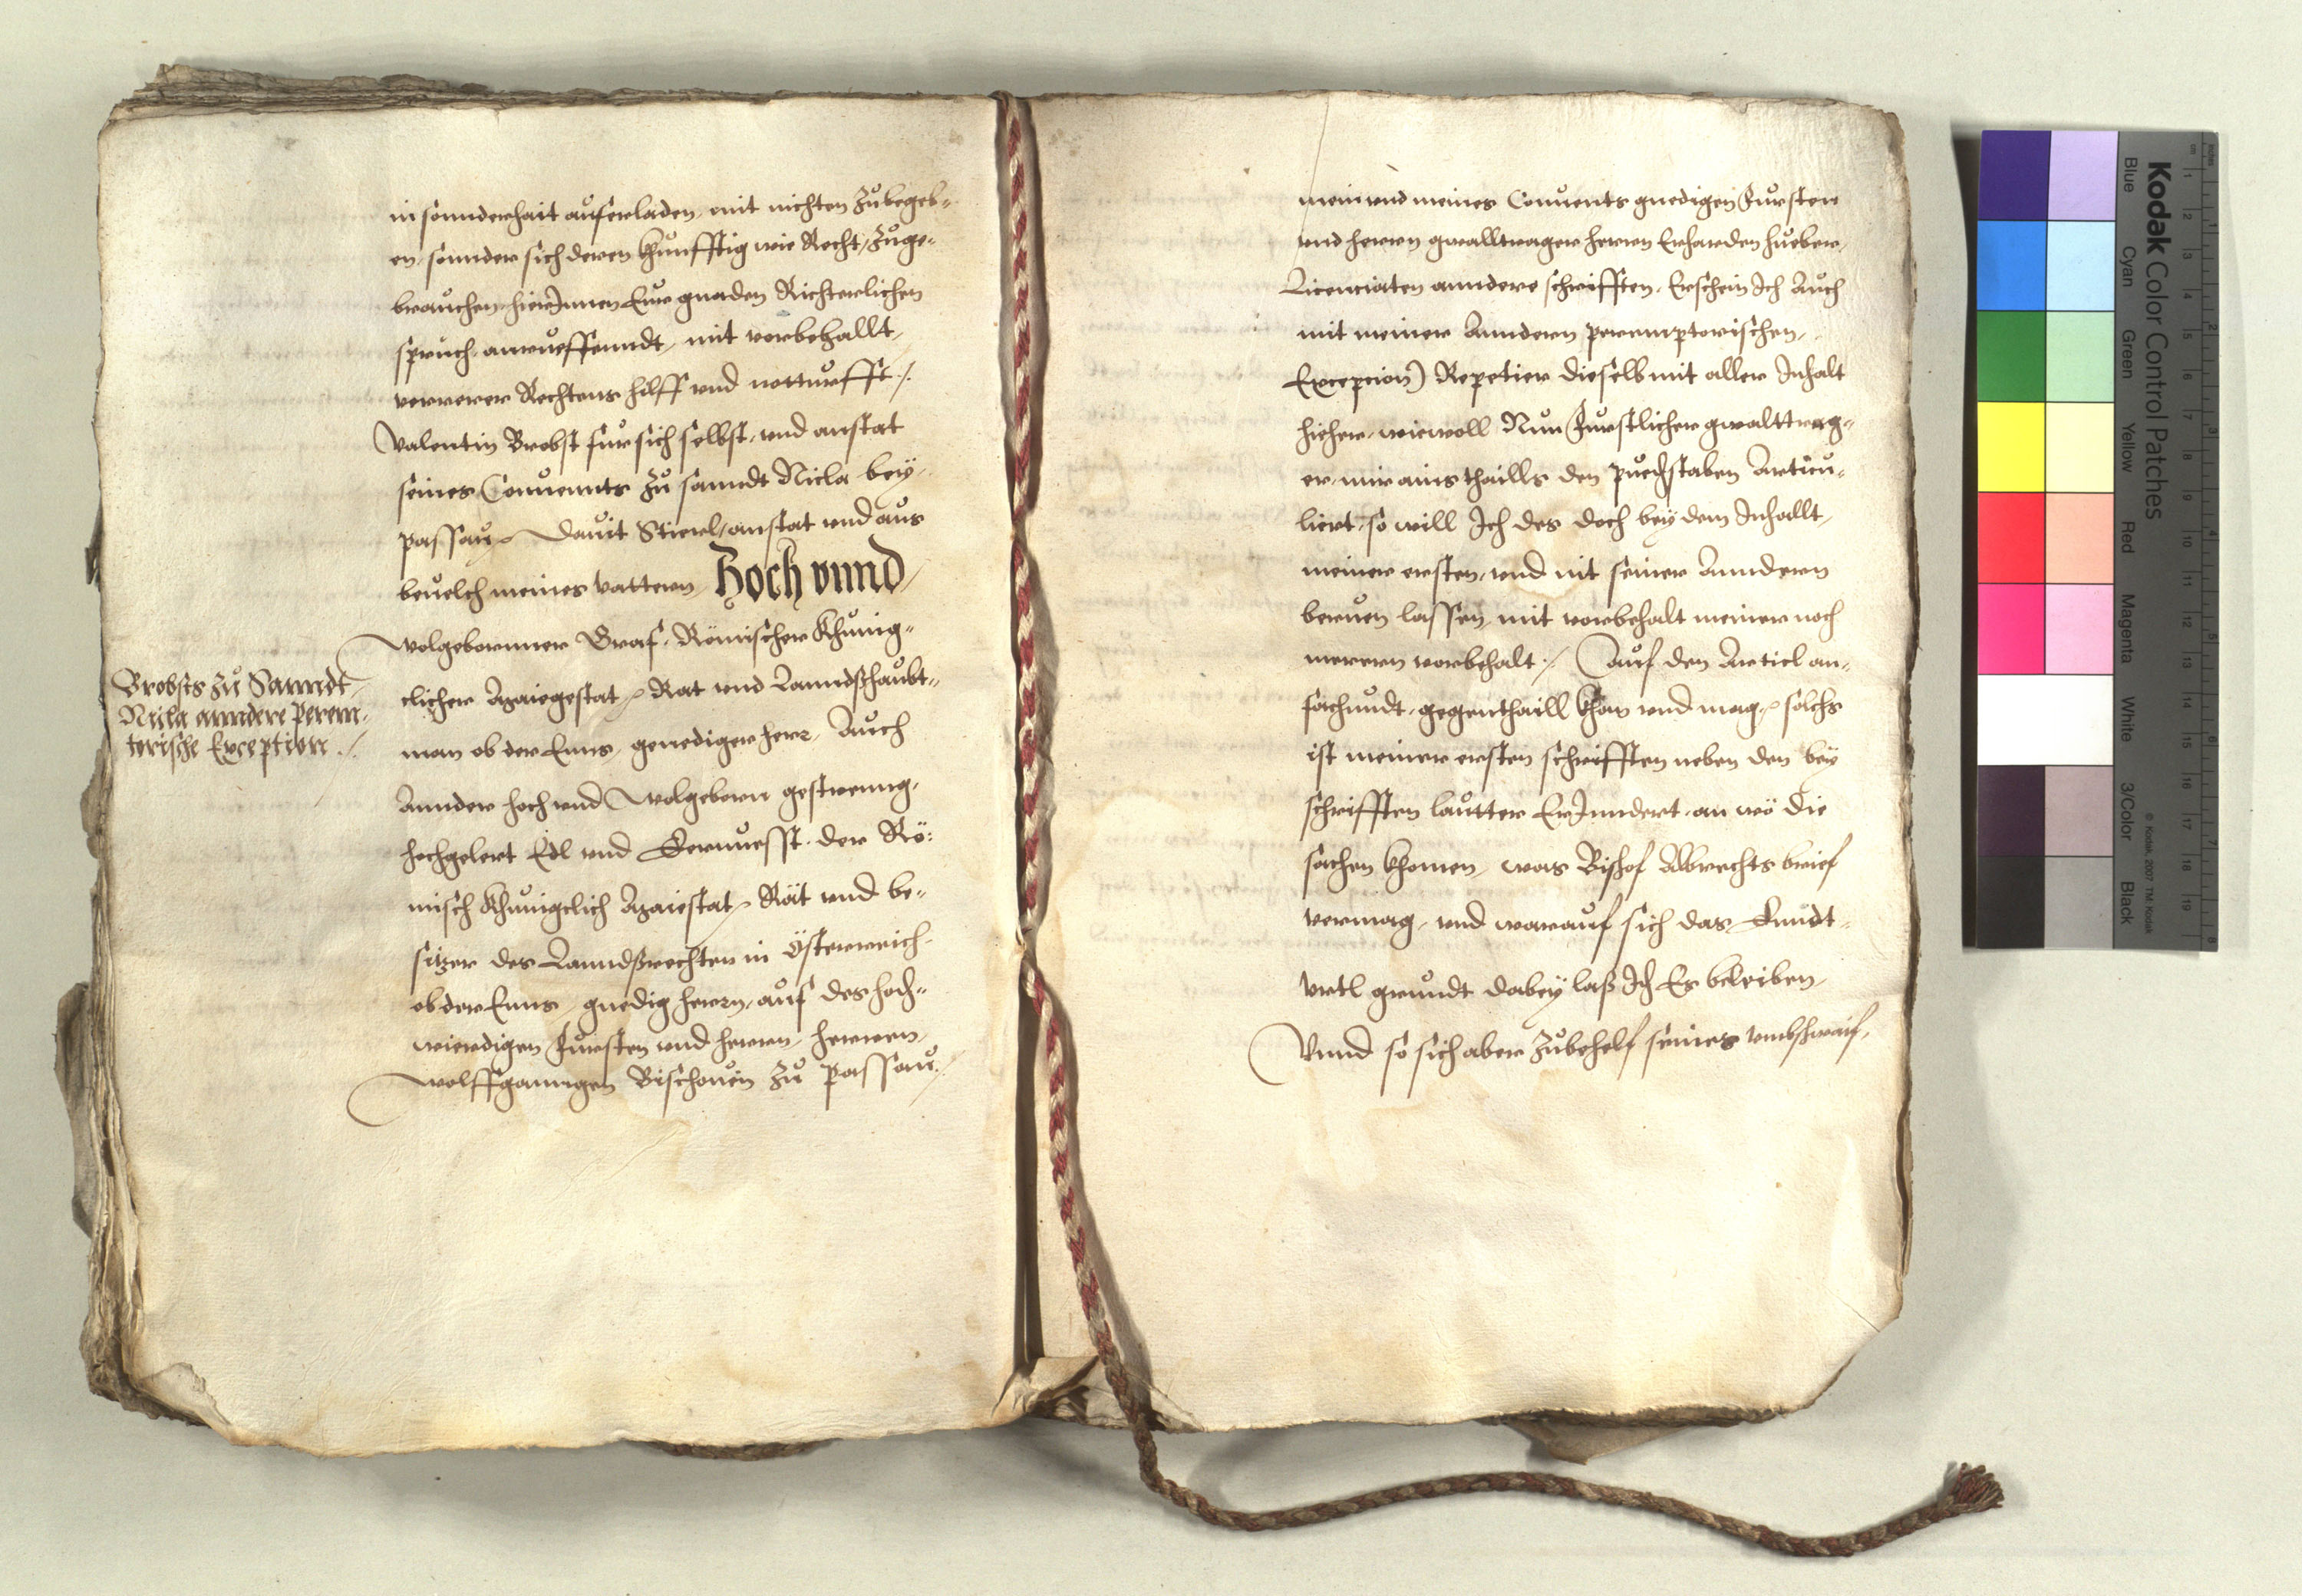 in sonnderhait auferladen, mit nichten zůbegeb-
en, sonnder sich deren khunfftig wie Recht, zůge-
brauchen, hierInnen Eur gnaden Richterlichen
spruch anrueffenndt, mit vorbehallt,
verrerer Rechtens hilff vnd notturfft ./.
Valentin Brobst für sich selbst, vnd anstat
seines Conuennts zů sanndt Nicla bey
passau, Dauit Stierl, anstat vnd aus
beuelch meines vattern, Hoch vnnd
Wolgebornner Graf, Römischer Khunig-
clicher Maiegestat, Rat vnd Lanndßhaubt-
man ob der Enns, genediger herr, Auch
Annder hoch vnd Wolgeborn gestrenng,
hochgelert Edl vnd Vernuesst, der Rö-
misch Khunigclich Maiestat, Rät vnd be-
sitzer des Lanndßrechten in Österreich
ob der Enns, gnedig herrn, auf des hoch-
wierdigen Fürsten vnd herrn, herren,
Wolffganngen Bischouen zů passau,
Brobsts zů Sanndt
Nicla anndere Perem-
torische Exception ./.
mein vnd meines Conuents gnedigen Fursten
vnd herrn gwalltrager herrn Erharden hueber,
Licenciaten anndere schrifften, Erschein Ich Auch
mit meiner Anndern peremptorischen,
Excepcion) Repetier dieselb mit aller Inhalt
hieher, wiewoll Nun Furstlicher gwalttrag-
er, mir ains thaills den puechstaben Articu-
liert, so will Ich des doch bey dem Inhallt,
meiner ersten, vnd nit seiner Anndern
beruen lassen, mit vorbehalt meiner noch
merern vorbehalt ./. Auf den Articl an-
fachundt, gegenthaill khan vnd mag, solchs
ist meiner ersten schrifften neben den bey
schrifften lautter ErInndert, an wö die
sachen khomen, was Bishof Albrechts brief
vermag, vnd warauf sich das Enndt-
vrtl grundt dabey laß Ich Es beleiben,
Vnnd so sich aber zůbehelf seines vmbshwaif,
Kodak Color Control Patches
Blue Cyan Green Yellow Red Magenta White 3/Color Black
© Kodak, 2007 TM: Kodak